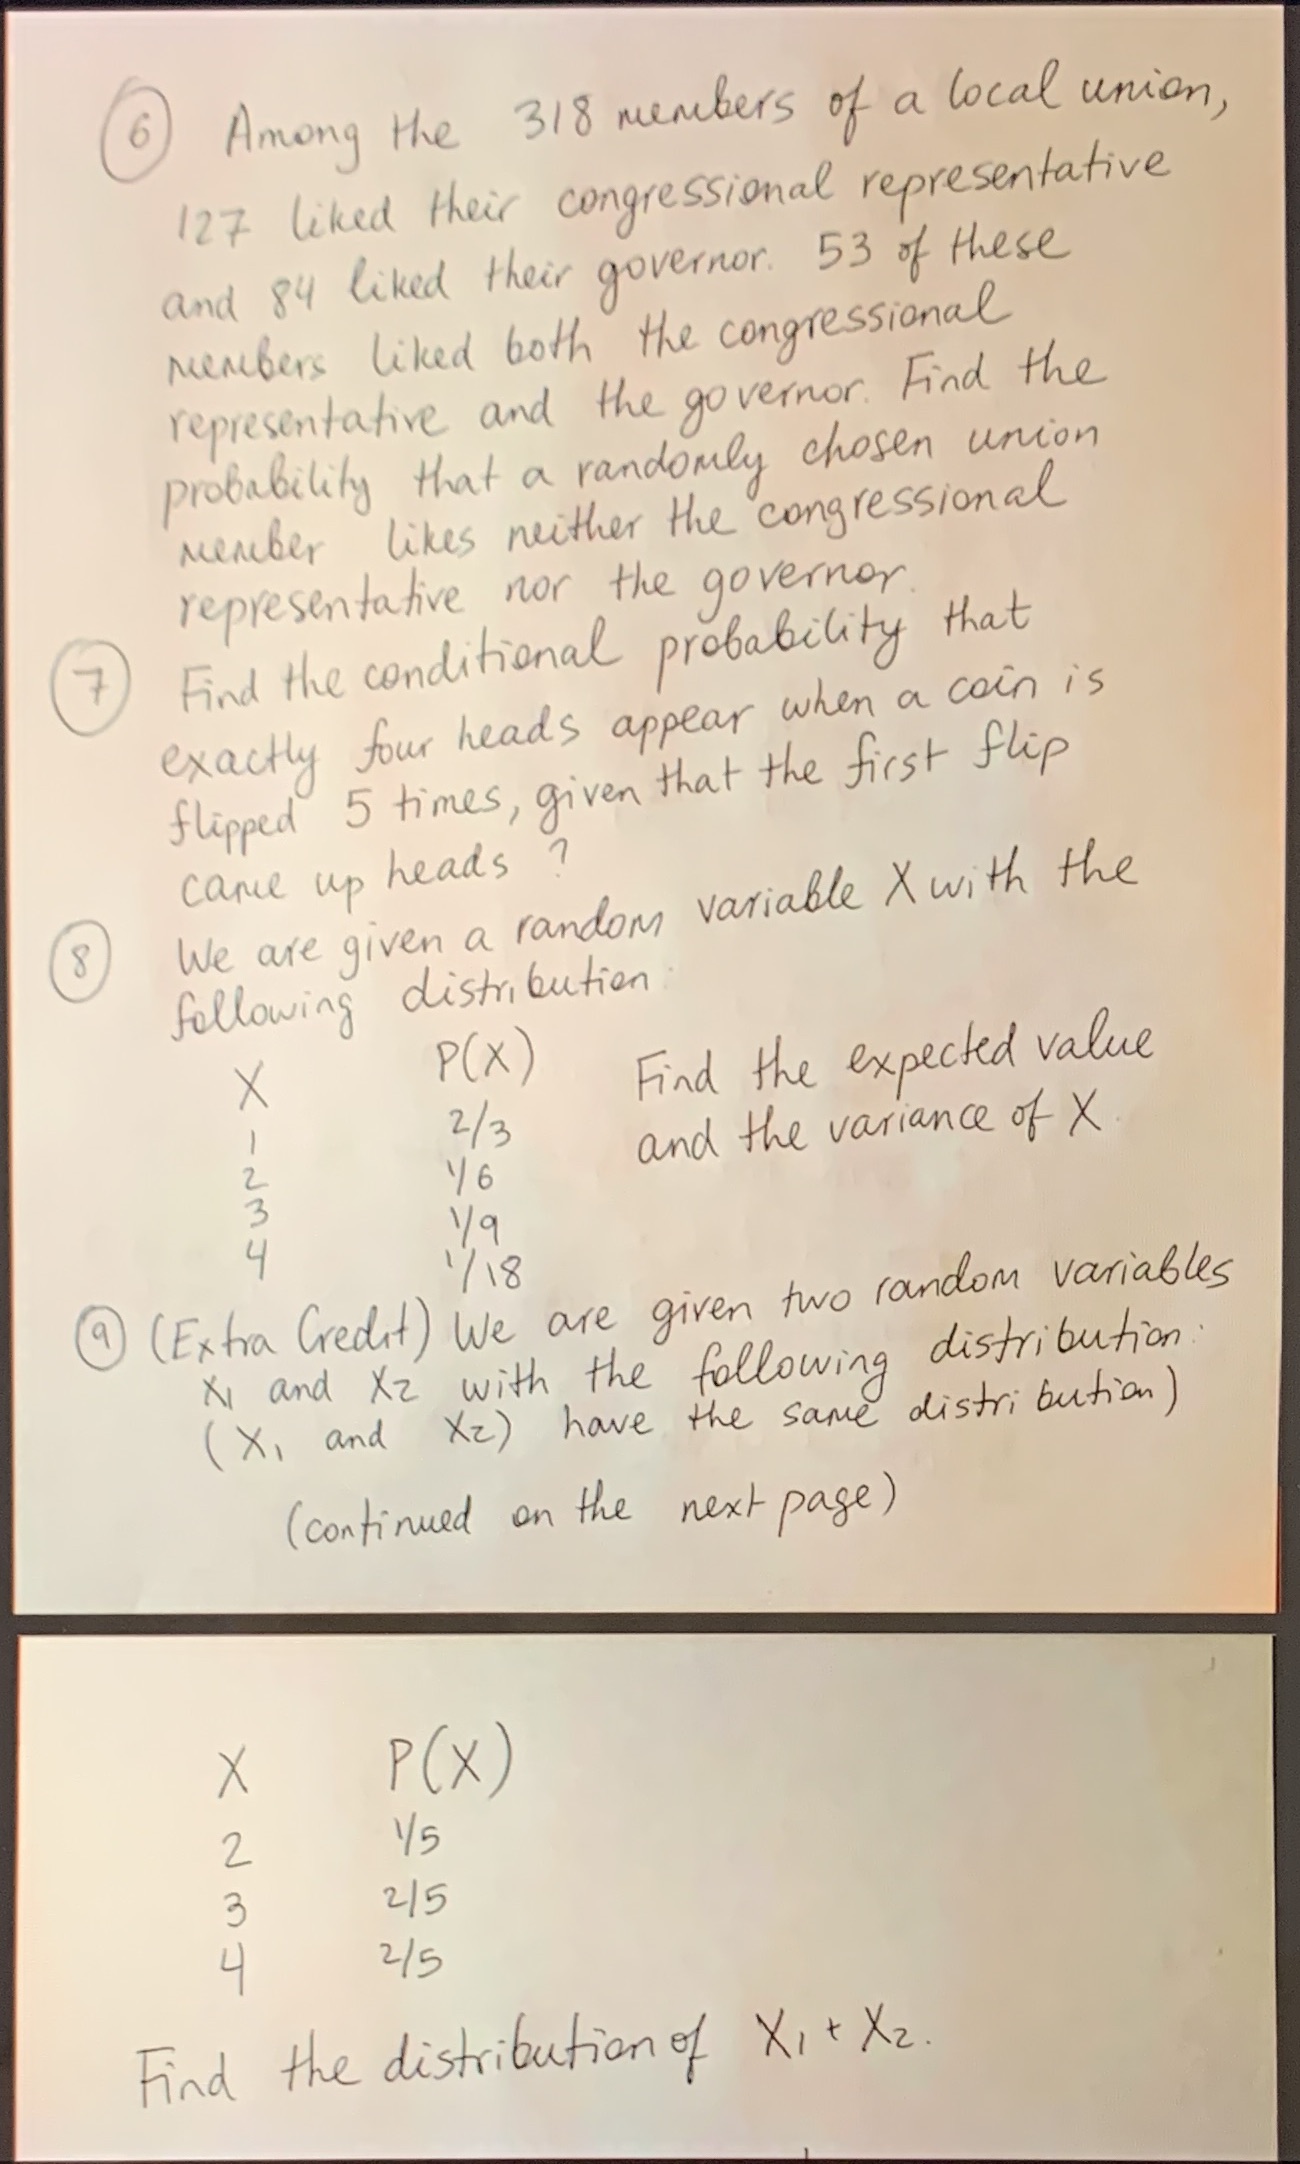 6 Among the 318 members of a local union,
127 liked their congressional representative
and 84 liked their governor. 53 of these
members liked both the congressional
representative and the governor. Find the
probability that a randomly chosen union
member likes neither the congressional
representative nor the governor.
7 Find the conditional probability that
exactly four heads appear when a coin is
flipped 5 times, given that the first flip
came up heads ?
8 We are given a random variable X with the
following distribution:
X P(X) Find the expected value
1 2/3 and the variance of X.
2 1/6
3 1/9
4 1/18
9 (Extra Credit) We are given two random variables
X1 and X2 with the following distribution:
(X1 and X2) have the same distribution)
(continued on the next page)
X P(X)
2 1/5
3 2/5
4 2/5
Find the distribution of X1 + X2.